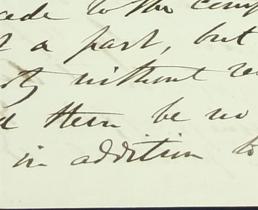 ade to the comp
t a part, but
ty without re
d them be no
in addition to